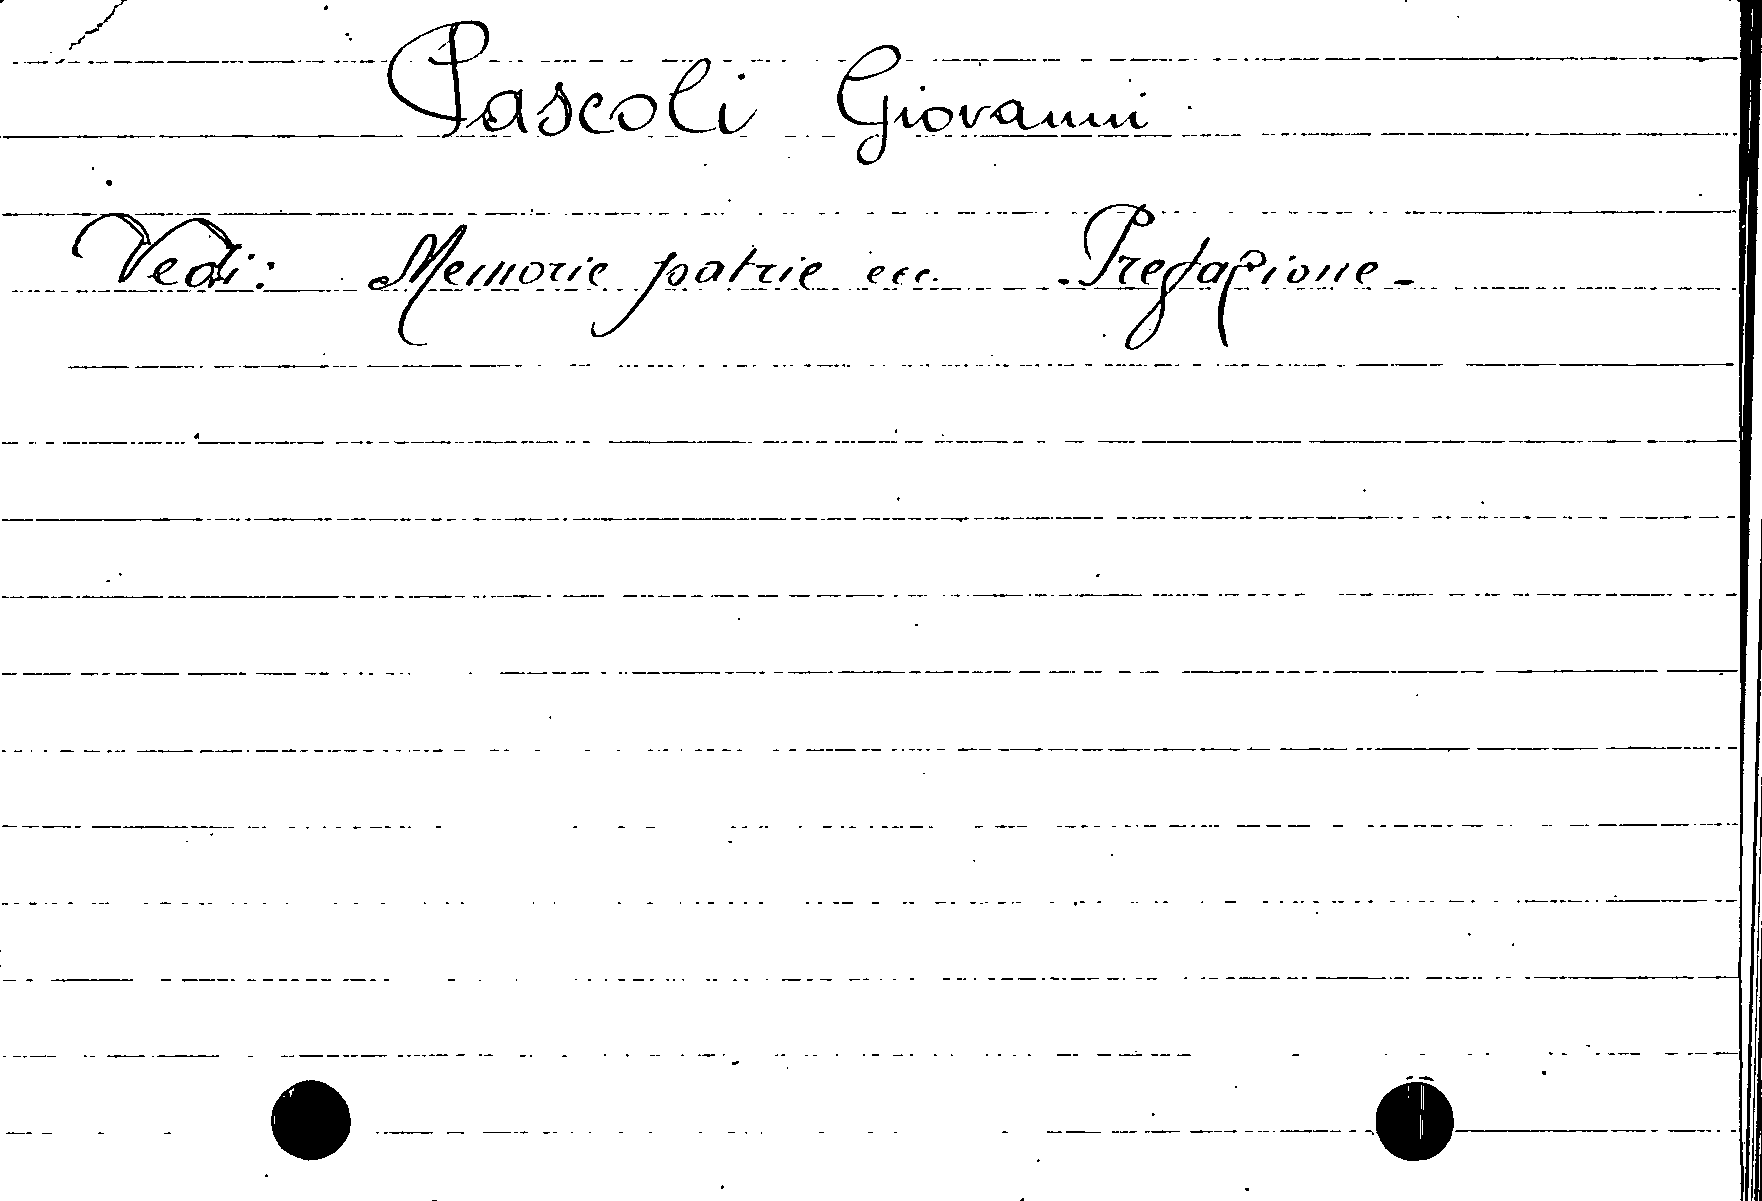 Pascoli Giovanni
Vedi: Memorie patrie ecc. - Prefazione -